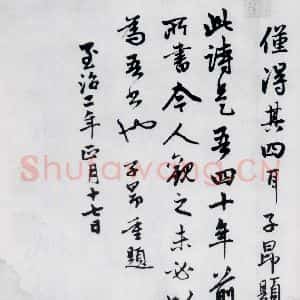 僅得其四耳子昂題
此詩是吾四十年前
所書今人觀之未必以
為吾書也子昂重題
至治二年正月十七日
Shufawang.CN